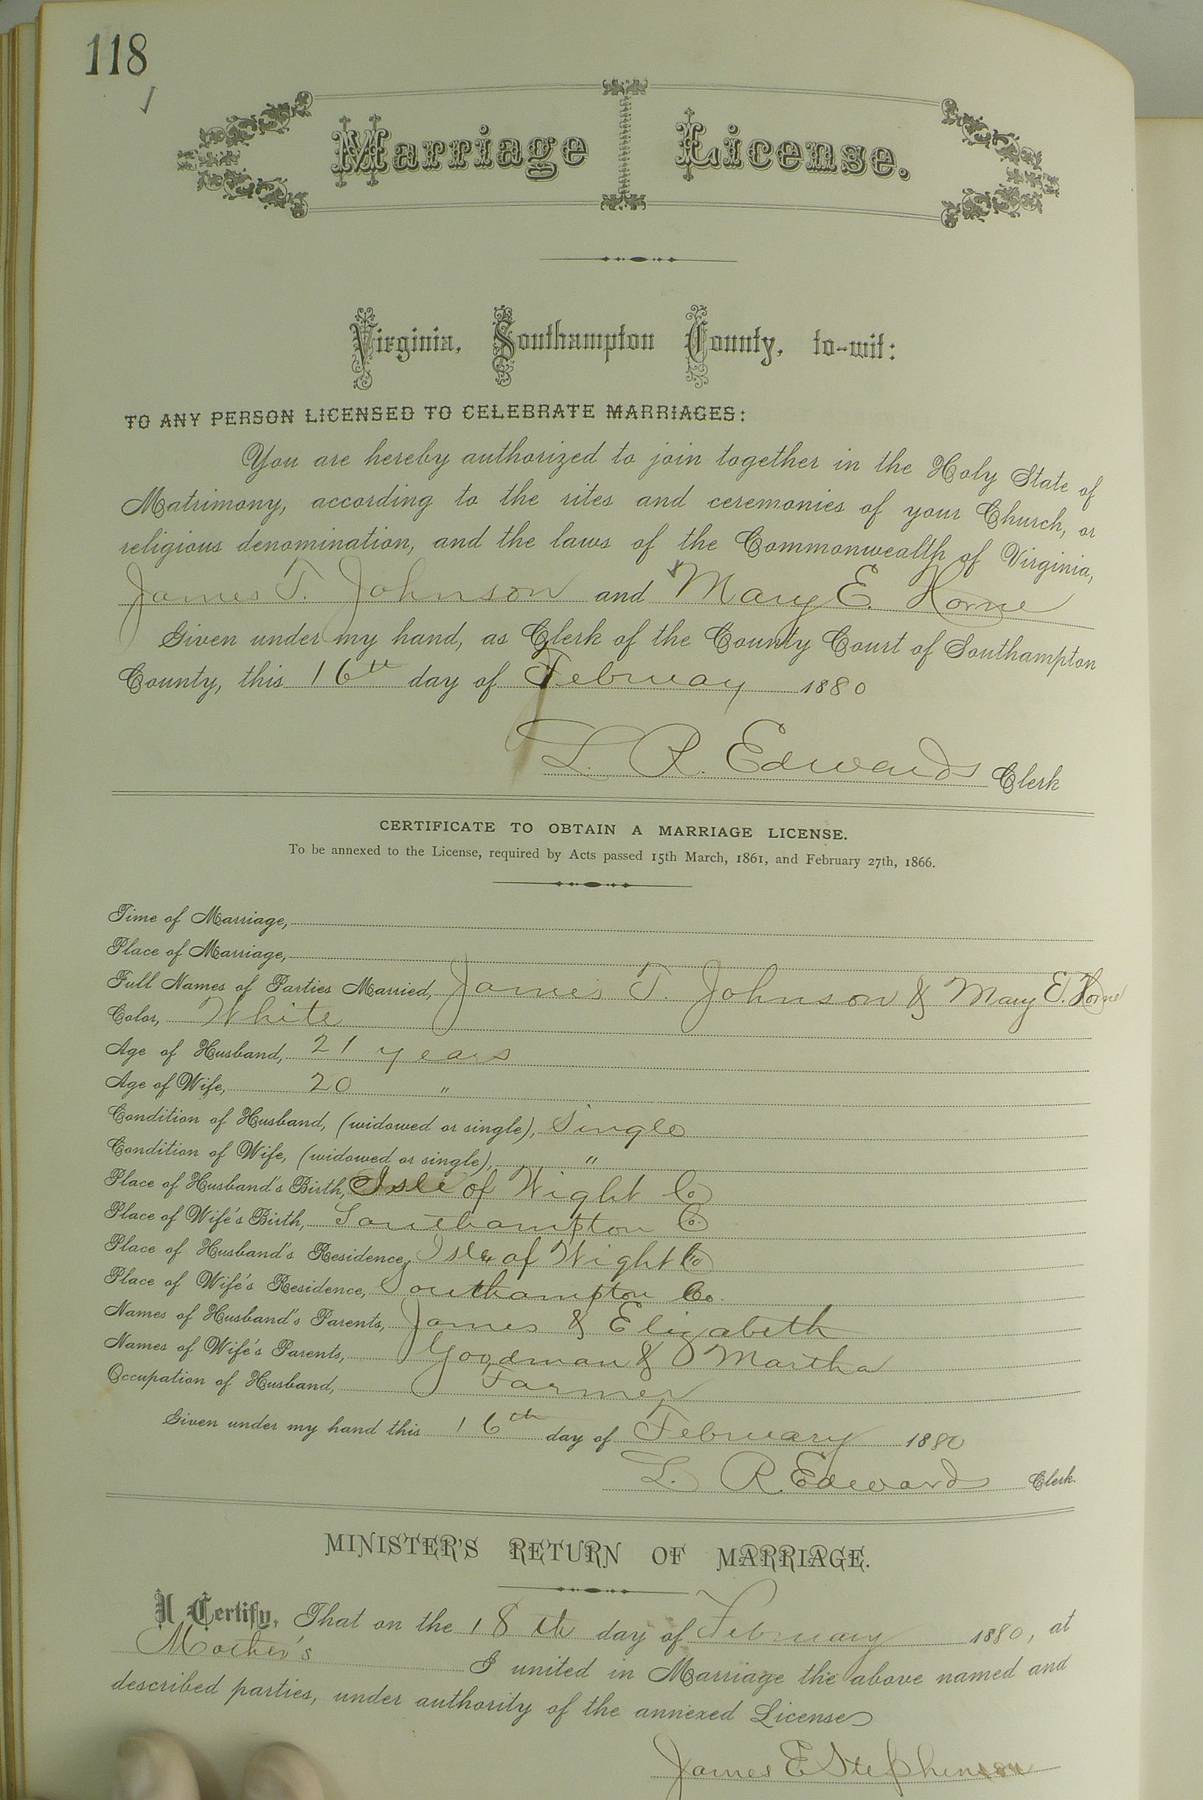 118
Marriage License.
Virginia, Southampton County, to-wit:
TO ANY PERSON LICENSED TO CELEBRATE MARRIAGES:
You are hereby authorized to join together in the Holy State of
Matrimony, according to the rites and ceremonies of your Church, or
religious denomination, and the laws of the Commonwealth of Virginia,
James T. Johnson and Mary E. Horne
Given under my hand, as Clerk of the County Court of Southampton
County, this 16th day of February 1880
L. R. Edwards Clerk
CERTIFICATE TO OBTAIN A MARRIAGE LICENSE.
To be annexed to the License, required by Acts passed 15th March, 1861, and February 27th, 1866.
Time of Marriage,
Place of Marriage,
Full Names of Parties Married, James T. Johnson & Mary E. Horne
Color, White
Age of Husband, 21 years
Age of Wife, 20 "
Condition of Husband, (widowed or single), Single
Condition of Wife, (widowed or single), "
Place of Husband's Birth, Isle of Wight Co
Place of Wife's Birth, Southampton Co
Place of Husband's Residence, Isle of Wight Co
Place of Wife's Residence, Southampton Co.
Names of Husband's Parents, James & Elizabeth
Names of Wife's Parents, Goodman & Martha
Occupation of Husband, Farmer
Given under my hand this 16th day of February 1880
L. R. Edwards Clerk.
MINISTER'S RETURN OF MARRIAGE.
I Certify, That on the 18th day of February 1880, at
Mother's I united in Marriage the above named and
described parties, under authority of the annexed License
James E Stephenson